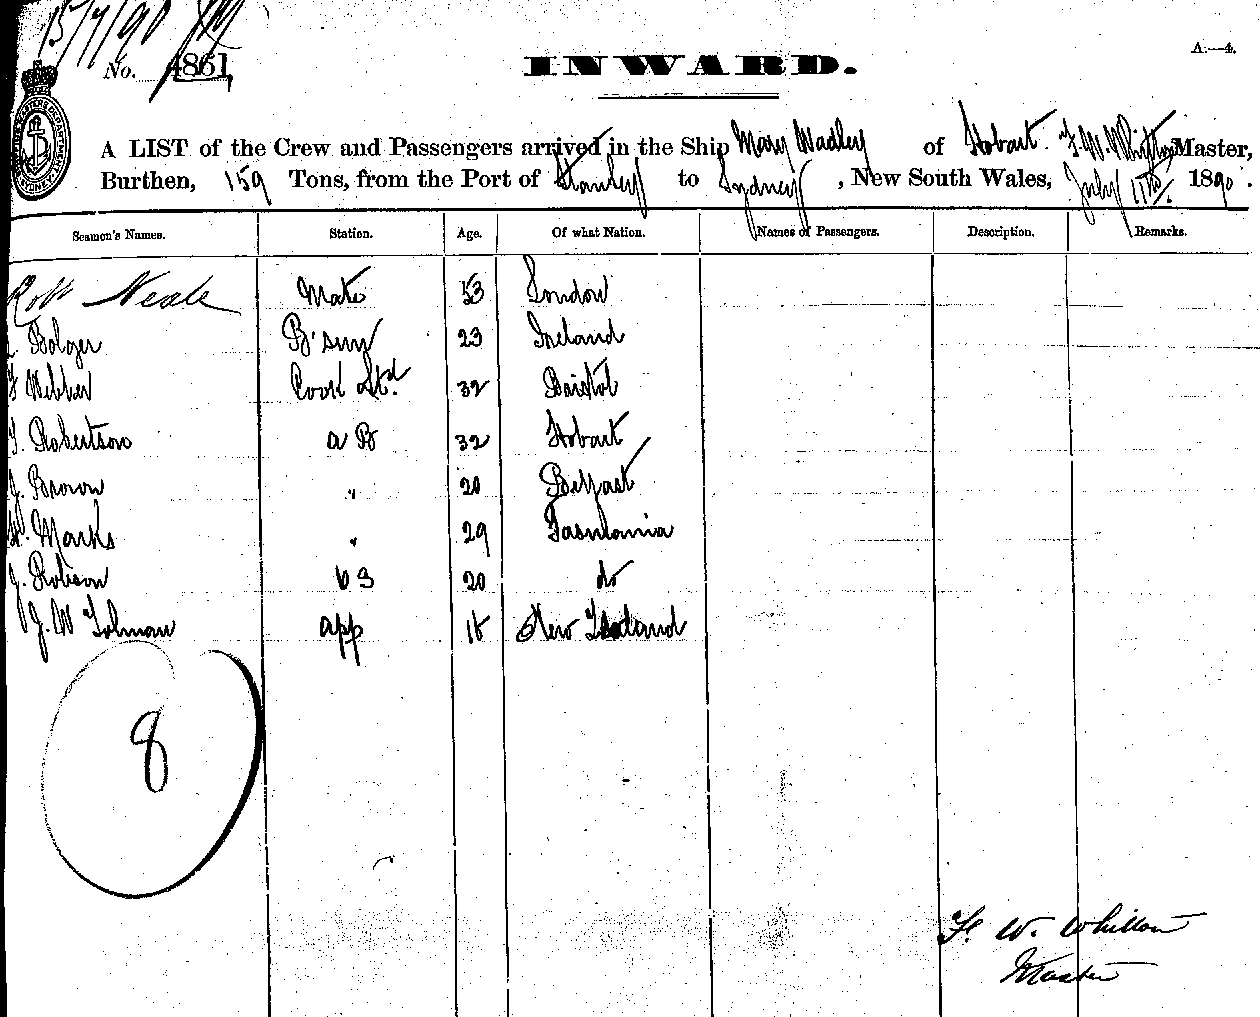 15/7/90
No. 4861
A.—4.
INWARD.
A LIST of the Crew and Passengers arrived in the Ship Mary Wadley of Hobart. F. W. Whitton Master,
Burthen, 159 Tons, from the Port of Stanley to Sydney, New South Wales, July 11th/ 1890.
Seamen's Names. Station. Age. Of what Nation. Names of Passengers. Description. Remarks.
Robt Neale Mate 53 London
Bolger B'sun 23 Ireland
F Webber Cook Std. 32 Bristol
T. Robertson a B 32 Hobart
J. Brown " 20 Belfast
Marks " 29 Tasmania
J. Robson 20 do
J. W Tolman app 18 New Zealand
8
F. W. Whitton
Master